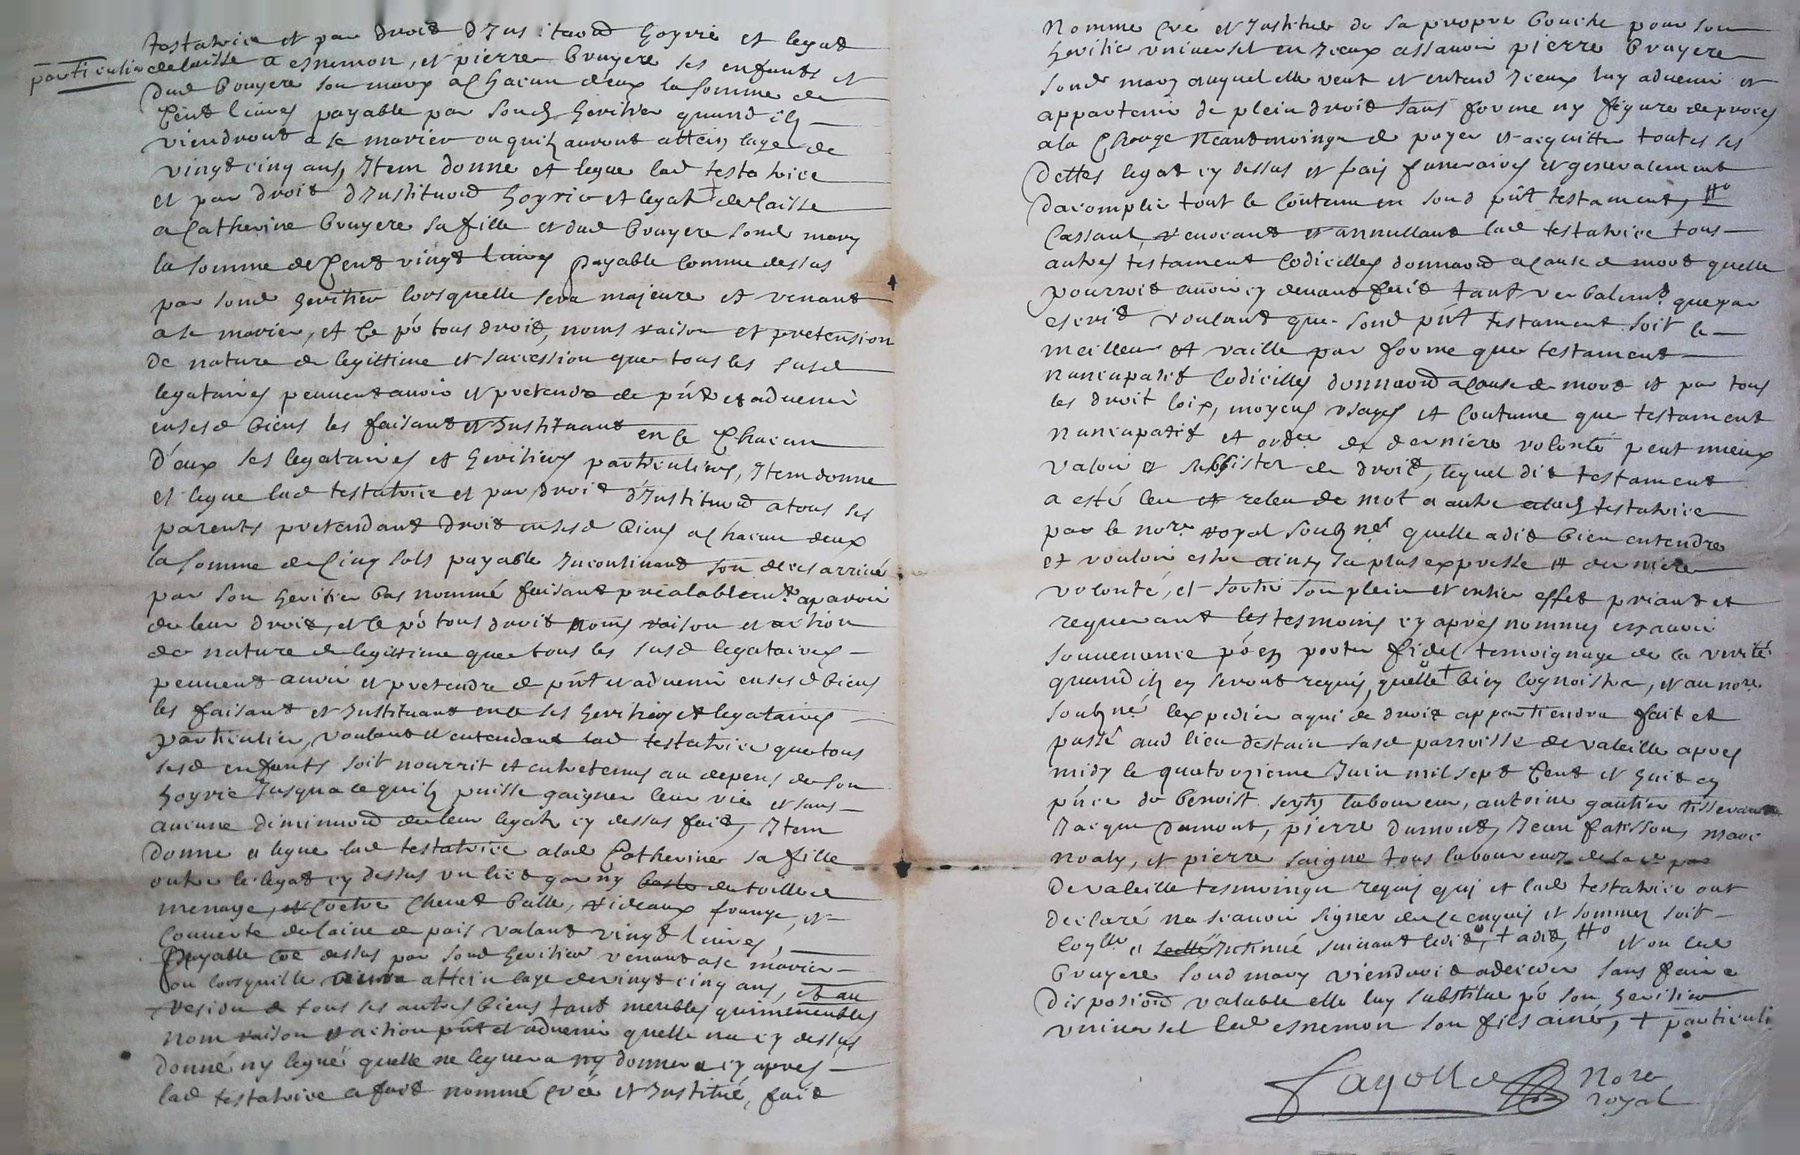 testatrice et par droit d'Institu͠on hoyrie et legat
particulier delaisse a esnemon, et pierre bruyere ses enfants et
dud bruyere son mary a chacun deux la somme de
Cent livres payable par sond heritier quand ils
viendront a se marier ou quilz auront attein lage de
vingt cinq ans, Item donne et legue lad testatrice
et par droit d'Institu͠on hoyrie et legat + delaisse
a Catherine bruyere sa fille et dud bruyere sond mary
la somme de Cent vingt livres payable comme dessus
par sond heritier lorsquelle sera majeure et venant
a se marier, et ce po͛ tous droit, noms raison et pretension
de nature de legittime et succession que tous les susd
legataires peuvent avoir et pretendre de p͠nt et advenir
en sesd biens les faisant et Instituant en ce Chacun
d'eux ses legataires et heritiers particuliers, Item donne
et legue lad testatrice et par droit d'Institu͠on a tous ses
parents pretendant droit en sesd biens a chacun deux
la somme de Cinq sols payable Incontinant son deces arrivé
par son heritier bas nommé faisant prealablem.t aparoir
de leur droit, et ce po͛ tous droit noms raison et action
de nature de legittime que tous les susd legataires
peuvent avoir et pretendre de p͠nt et advenir en sesd biens
les faisant et Instituant en ce ses heritiers et legataires
particulier, voulant et entendant lad testatrice que tous
sesd enfants soit nourrit et entretenus au depens de son
hoyrie Jusqua ce quilz puisse gaigner leur vie et sans
aucune diminu͠on de leur legats cy dessus fait, Item
donne et legue lad testatrice a lad Catherine sa fille
outre le legat cy dessus un lict garny de toille de
menage, Coetre Chevet balle, rideaux frange, et
Couverte de laine de pais valant vingt livres,
Payable c͠oe dessus par sond heritier venant a se marier
ou lorsquille aura attein lage de vingt cinq ans, et au
residu de tous ses autres biens tant meubles quimmeubles
nom raison et action p͠nt et advenir quelle na cy dessus
donné ny legué quelle ne leguera ny donnera cy apres
lad testatrice a fait nommé créé et Institué, fait
Nomme Cré et Institue de sa propre bouche pour son
heritier universel en Iceux assavoir pierre bruyere
sond mary auquel elle veut et entend Iceux luy advenir et
appartenir de plein droit sans forme ny figure de proces
a la Charge Neantmoings de payer et acquitter toutes ses
dettes legat cy dessus et frais funeraires et generalement
dacomplir tout le Contenu en sond p͠nt testament, #o
Cassant, revocant et annullant lad testatrice tous
autres testament Codicilles dona͠on a cause de mort quelle
pourroit avoir cy devant fait tant verbalem.t que par
escrit voulant que sond p͠nt testament soit le
meilleur et vaille par forme que testament
nuncupatif Codicilles dona͠on a cause de mort et par tous
les droit loix, moyens usages et Coutume que testament
nuncupatif et ordre de derniere volonté peut mieux
valoir et subsister de droit, lequel dit testament
a esté leu et releu de mot a autre a lad testatrice
par le nore royal soubzné quelle a dit bien entendre
et vouloir estre ainsy sa plus expresse et derniere
volonté, et sortir son plein et entier effet priant et
requerant les tesmoins cy apres nommes en avoir
souvenance po͛ en porter fidel temoignage de la verité
quand ilz en seront requis, quelle + bien Cognoistre, et au nore
soubzné lexpedier a qui de droit appartiendra fait et
passé aud lieu destain susd parroisse de valeille apres
midy le quatorzieme Juin mil sept Cent et huit en
p͠nce de benoist laboureur, antoine gautier tisserant
Jacque dumont, pierre dumont, Jean fatisson, marc
noaly, et pierre saigne tous laboureurs
de valeille tesmoings requis qui et lad testatrice ont
declaré ne scavoir signer de ce enquis et sommes soit
Coyllé et Insinué suivant ledit, + a dit, #o et ou led
bruyere sond mary viendroit a deceder sans faire
disposi͠on valable elle luy substitue po͛ son heritier
universel led esnemon son fils ainé, + particuli
Fayolle Nore
royal